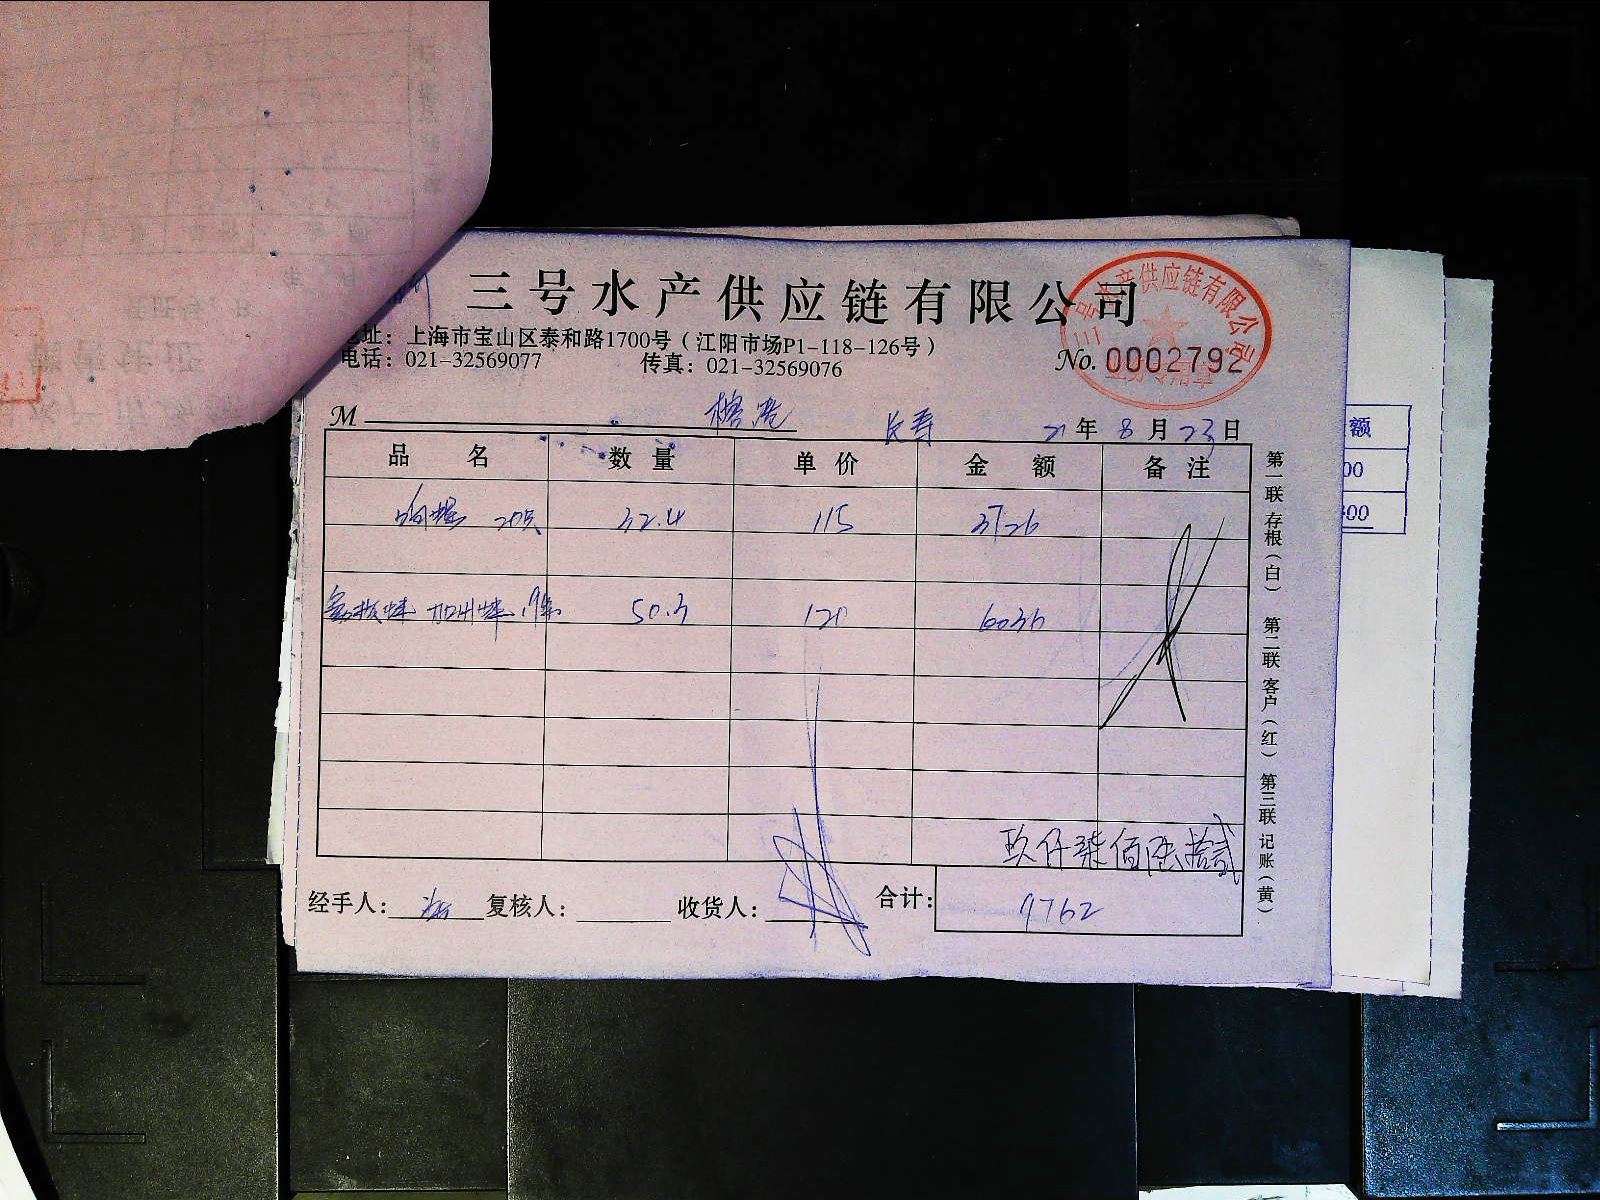 三号水产供应链有限公司
地址：上海市宝山区泰和路1700号（江阳市场P1-118-126号）
电话：021-32569077 传真：021-32569076
No. 0002792
三号水产供应链有限公司
M 榕港 长寿 21年8月23日
品名 数量 单价 金额 备注
响螺 32.4 115 3726
加州蚌 50.3 120 6036
玖仟柒佰陆拾贰
经手人： 复核人： 收货人： 合计： 9762
第一联 存根（白） 第二联 客户（红） 第三联 记账（黄）
额
00
300